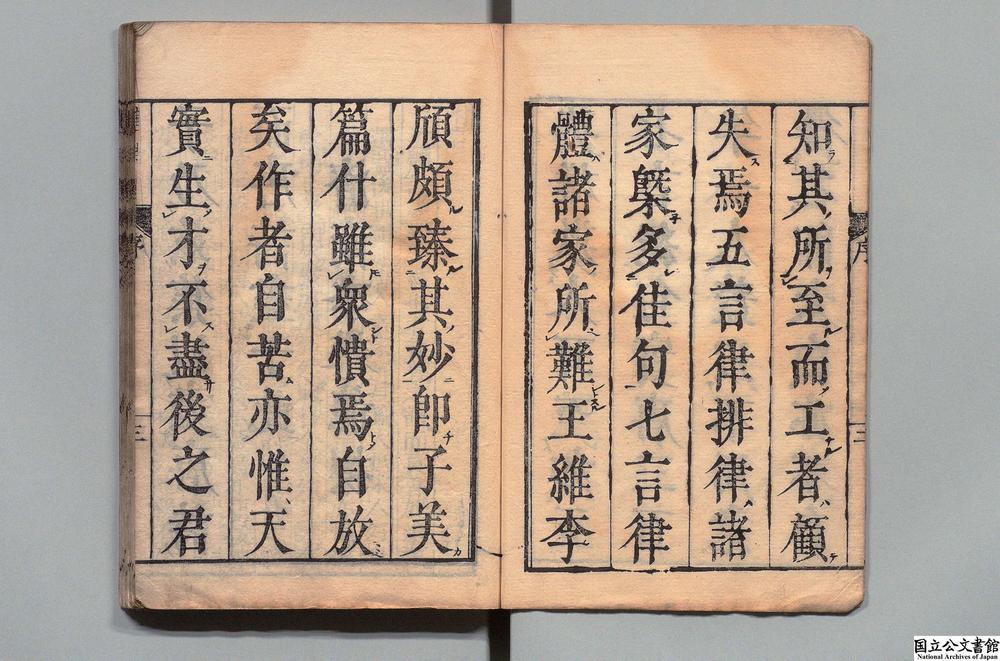 知其所至而工者顧
失焉五言律排律諸
家槩多佳句七言律
體諸家所難王維李
頎頗臻其妙卽子美
篇什雖衆憒焉自放
矣作者自苦亦惟天
實生才不盡後之君
序
三
国立公文書館
National Archives of Japan